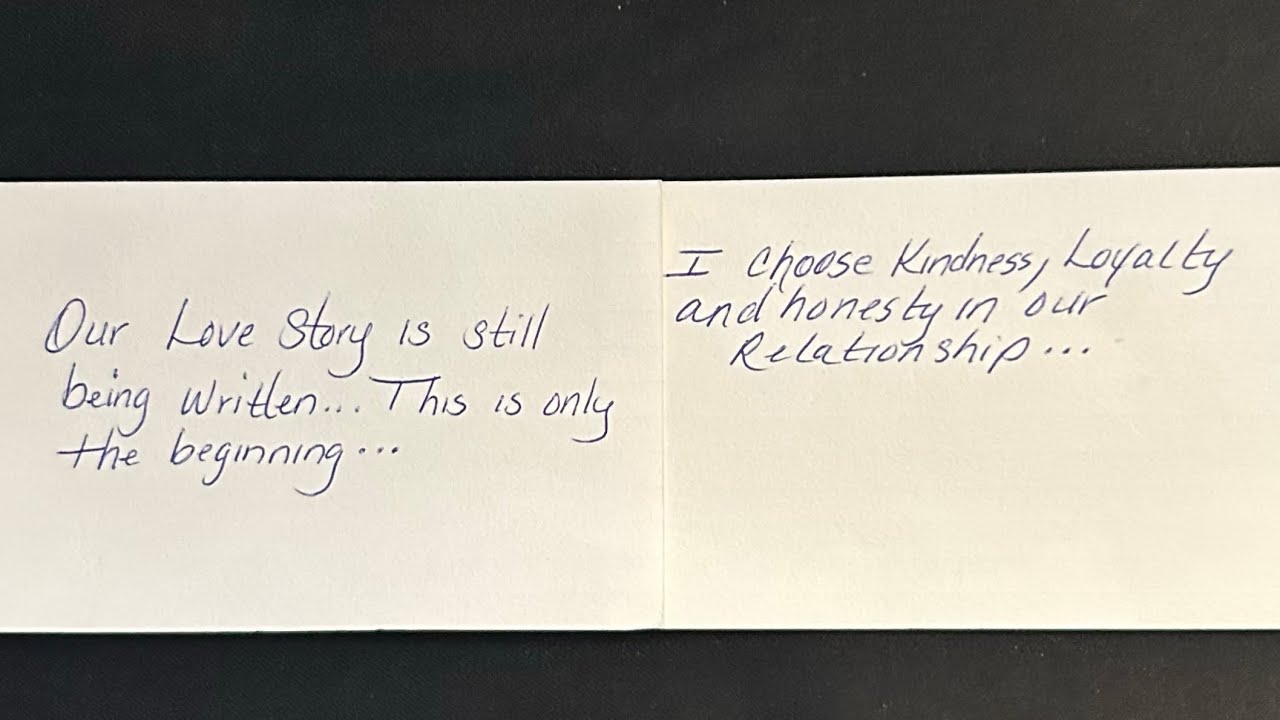 Our Love Story is still
being written... This is only
the beginning...
I choose Kindness, Loyalty
and honesty in our
Relationship...